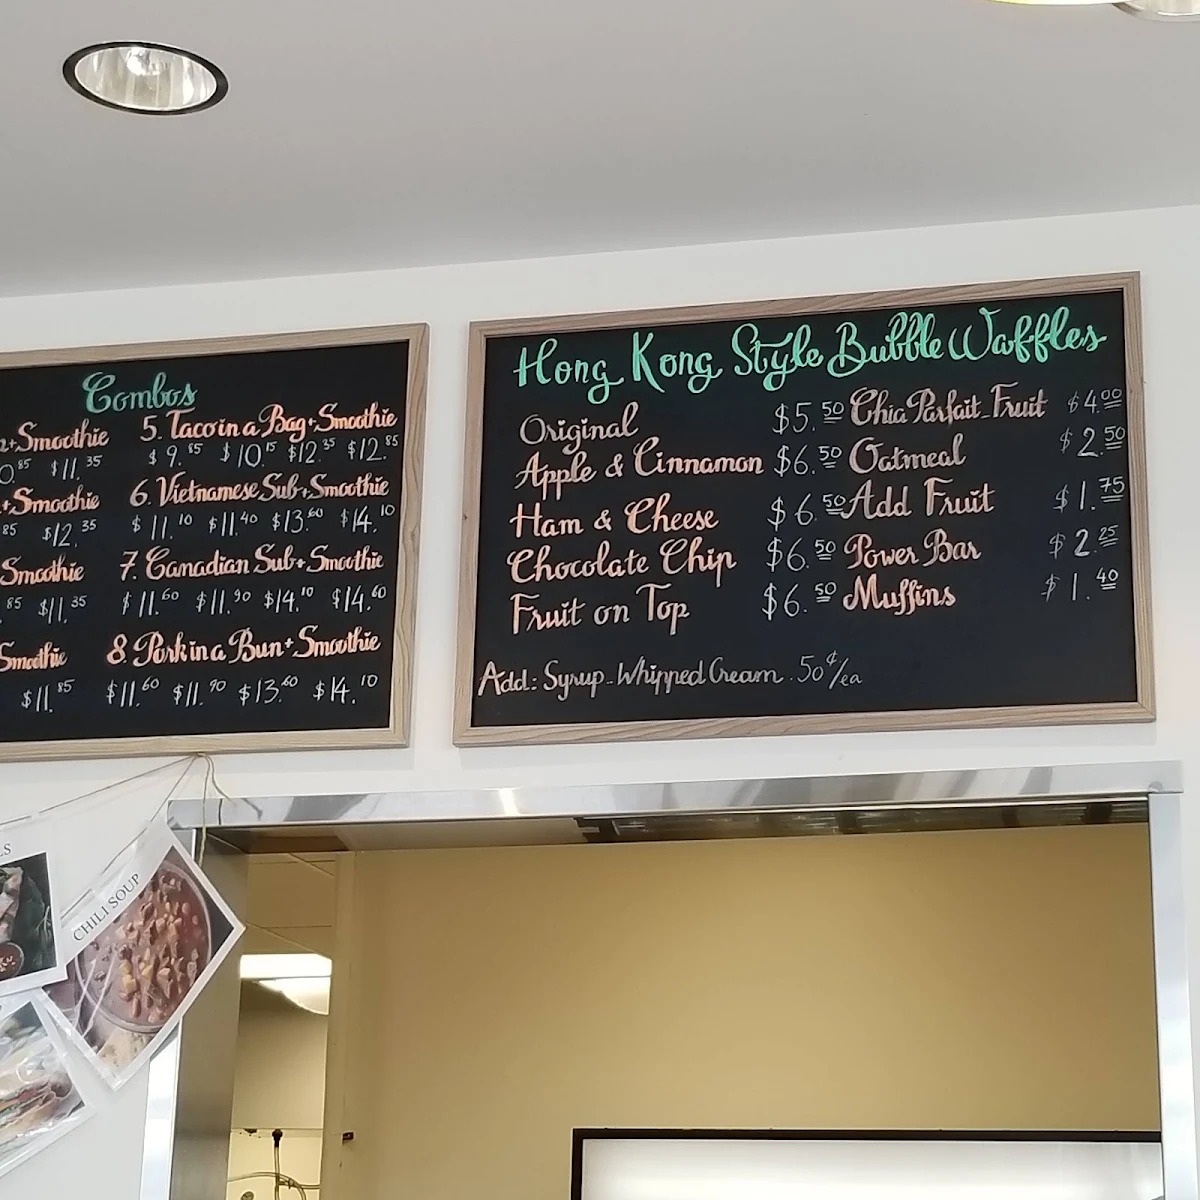 Combos
+Smoothie
.85 $11.35
+Smoothie
85 $12.35
Smoothie
85 $11.35
Smoothie
$11.85
5. Taco in a Bag + Smoothie
$9.85 $10.15 $12.35 $12.85
6. Vietnamese Sub + Smoothie
$11.10 $11.40 $13.60 $14.10
7. Canadian Sub + Smoothie
$11.60 $11.90 $14.10 $14.60
8. Pork in a Bun + Smoothie
$11.60 $11.90 $13.60 $14.10
Hong Kong Style Bubble Waffles
Original $5.50
Apple & Cinnamon $6.50
Ham & Cheese $6.50
Chocolate Chip $6.50
Fruit on Top $6.50
Chia Parfait - Fruit $4.00
Oatmeal $2.50
Add Fruit $1.75
Power Bar $2.25
Muffins $1.40
Add: Syrup - Whipped Cream . 50¢/ea
CHILI SOUP